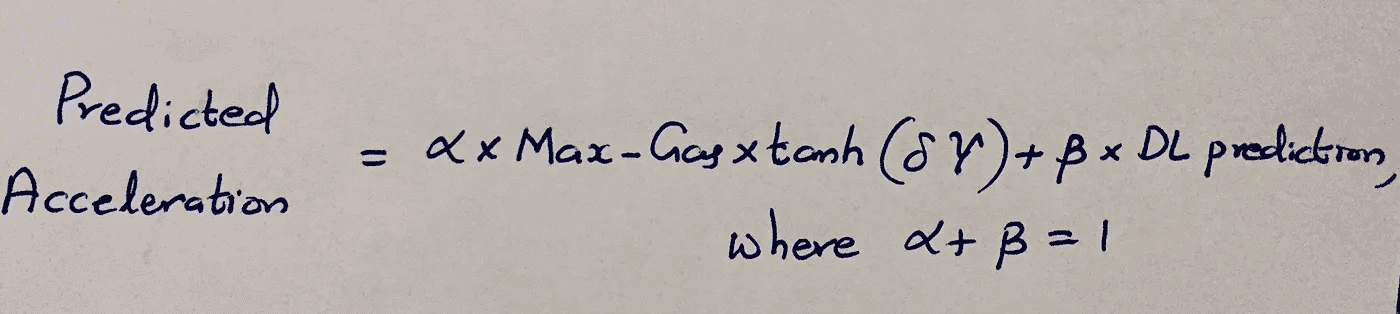 Predicted Acceleration = α x Max-Gas x tanh (δγ) + β x DL prediction,
where α + β = 1